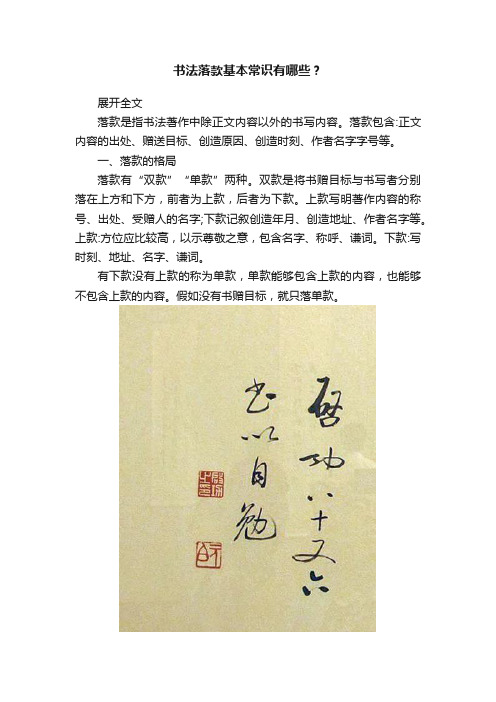 书法落款基本常识有哪些？
展开全文
落款是指书法著作中除正文内容以外的书写内容。落款包含:正文
内容的出处、赠送目标、创造原因、创造时刻、作者名字字号等。
一、落款的格局
落款有“双款”“单款”两种。双款是将书赠目标与书写者分别
落在上方和下方，前者为上款，后者为下款。上款写明著作内容的称
号、出处、受赠人的名字;下款记叙创造年月、创造地址、作者名字等。
上款:方位应比较高，以示尊敬之意，包含名字、称呼、谦词。下款:写
时刻、地址、名字、谦词。
有下款没有上款的称为单款，单款能够包含上款的内容，也能够
不包含上款的内容。假如没有书赠目标，就只落单款。
啓功八十又六
书以自勉
元白